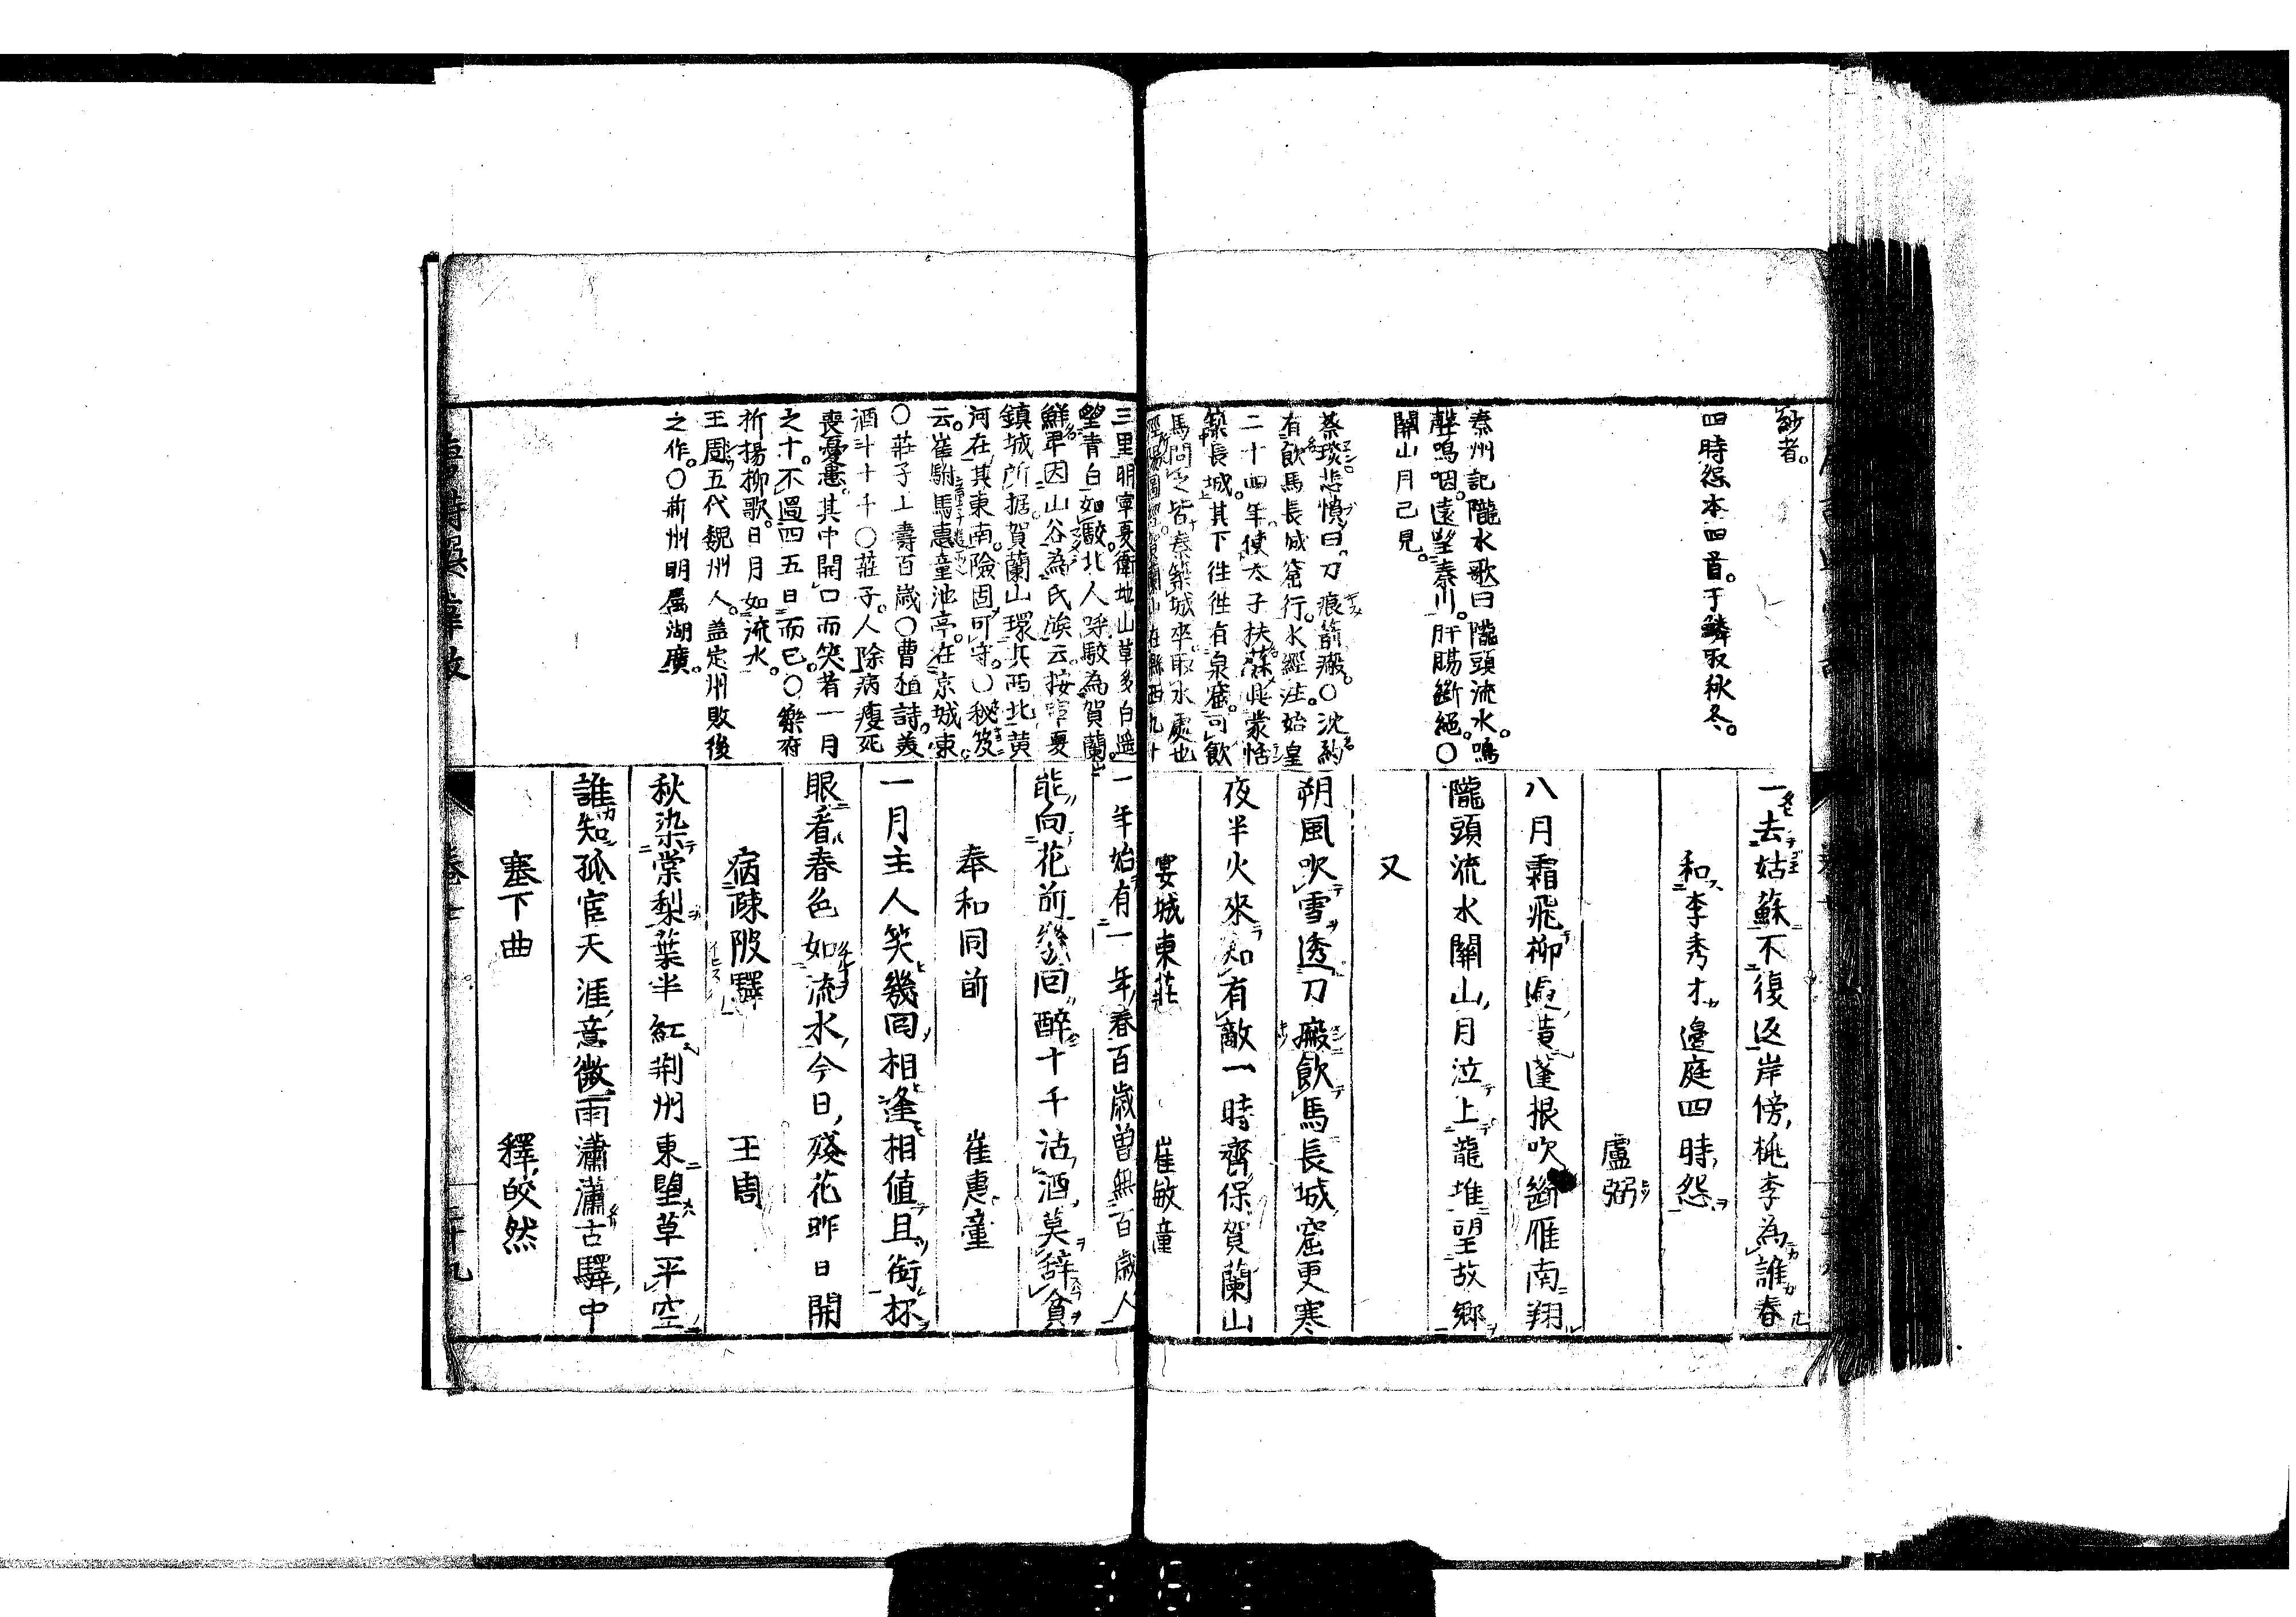 一去姑蘇不復返岸傍桃李為誰春
和李秀才邊庭四時怨
盧弼
八月霜飛柳遍黃蓬根吹斷雁南翔
隴頭流水關山月泣上龍堆望故鄉
又
朔風吹雪透刀瘢飲馬長城窟更寒
夜半火來知有敵一時齊保賀蘭山
宴城東莊 崔敏童
紗者。
四時怨本四首。于鱗取秋冬。
秦州記隴水歌曰隴頭流水。鳴
聲嗚咽。遠望秦川。肝腸斷絕。〇
關山月已見。
蔡琰悲憤曰。刀痕箭瘢。〇沈約
有飲馬長城窟行。水經注。始皇
二十四年。使太子扶蘇與蒙恬
築長城。其下往往有泉窟。可飲
馬問之皆秦築城卒取水處也
一年始有一年春百歲曾無百歲人
能向花前幾回醉十千沽酒莫辭貧
奉和同前 崔惠童
一月主人笑幾回相逢相值且銜杯
眼看春色如流水今日殘花昨日開
病疎陂驛 王周
秋染棠梨葉半紅荆州東望草平空
誰知孤宦天涯意微雨瀟瀟古驛中
塞下曲 釋皎然
三里明寧夏衛地山草多白遥
望青白如駮北人呼駮為賀蘭
鮮卑因山谷為氏族云按寧夏
鎮城所据賀蘭山環其西北黄
河在其東南。險固可守。〇秘笈
云。崔駙馬惠童池亭。在京城東
〇莊子上壽百歲〇曹植詩。美
酒斗十千〇莊子。人除病瘦死
喪憂患。其中開口而笑者一月
之十。不過四五日而已。〇樂府
折楊柳歌。日月如流水。
王周五代魏州人。盖定州敗後
之作。〇荊州明屬湖廣。